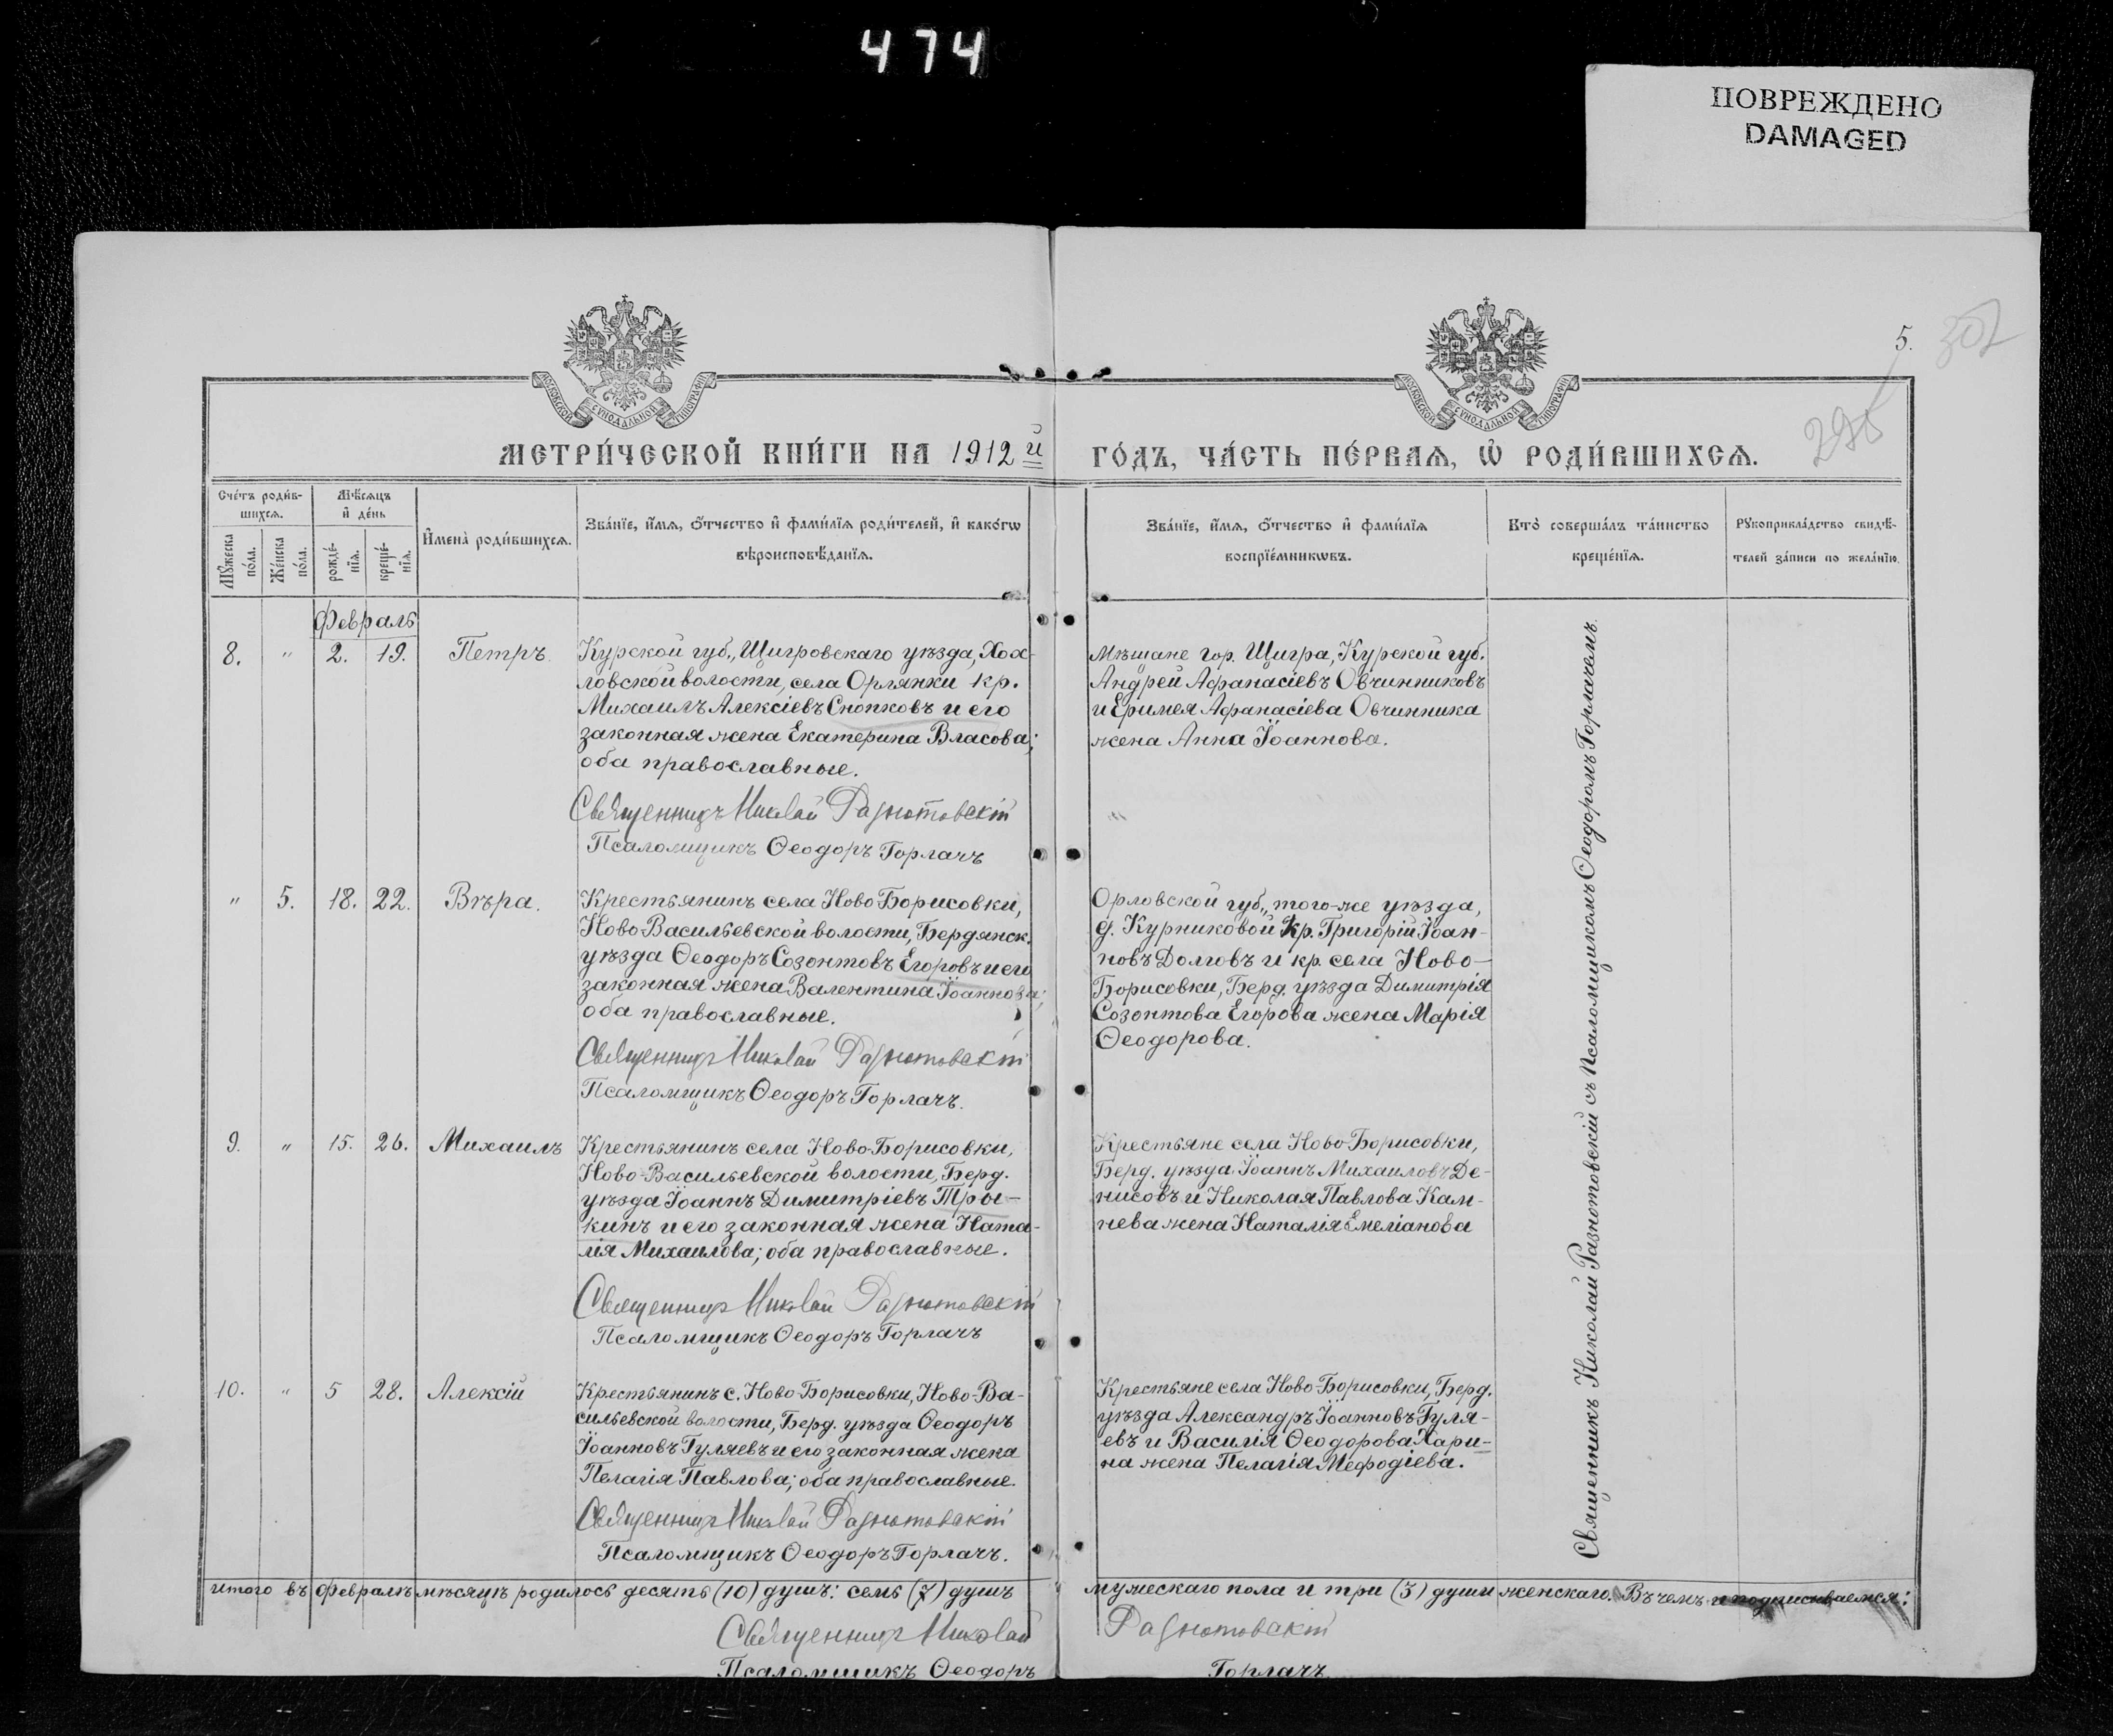 474
ПОВРЕЖДЕНО
DAMAGED
5.
302
295
МОСКОВСКОЙ СѴНОДАЛЬНОЙ ТИПОГРАФІИ
МОСКОВСКОЙ СѴНОДАЛЬНОЙ ТИПОГРАФІИ
МЕТРИ́ЧЕСКОЙ КНИ́ГИ НА 1912й ГО́ДЪ, ЧА́СТЬ ПЕ́РВАѦ, Ѽ РОДИ́ВШИХСѦ.
Сче́тъ роди́в-
шихсѧ.
Мꙋ́жеска по́ла.
Же́нска по́ла.
Мѣ́сѧцъ
и҆ де́нь
рожде́-
нїѧ.
креще́-
нїѧ.
И҆мена̀ роди́вшихсѧ.
Зва́нїе, и҆́мѧ, ѻ҆́тчество и҆ фами́лїѧ роди́телей, и҆ како́гѡ
вѣроисповѣ́данїѧ.
Зва́нїе, и҆́мѧ, ѻ҆́тчество и҆ фами́лїѧ
воспрїе́мникѡвъ.
Кто̀ соверша́лъ та́инство
креще́нїѧ.
Рꙋкоприкла́дство свидѣ́-
телей за́писи по жела́нїю.
Февраль
8. " 2. 19. Петръ.
Курской губ., Щигровскаго уѣзда, Хох-
ловской волости, села Орлянки кр.
Михаилъ Алексіевъ Снопковъ и его
законная жена Екатерина Власова;
оба православные.
Священникъ Николай Разнотовскій
Псаломщикъ Ѳеодоръ Горлачъ
Мѣщане гор. Щигра, Курской губ.
Андрей Аѳанасіевъ Овчинниковъ
и Еримея Аѳанасіева Овчинника
жена Анна Іоаннова.
"
" 5. 18. 22. Вѣра.
Крестьянинъ села Ново Борисовки,
Ново Васильевской волости, Бердянск.
уѣзда Ѳеодоръ Созонтовъ Егоровъ и его
законная жена Валентина Іоаннова;
оба православные.
Священникъ Николай Разнотовскій
Псаломщикъ Ѳеодоръ Горлачъ.
Орловской губ., того-же уѣзда,
д. Курниковой кр. Григорій Іоан-
новъ Долговъ и кр. села Ново-
Борисовки, Берд. уѣзда Димитрія
Созонтова Егорова жена Марія
Ѳеодорова.
9. " 15. 26. Михаилъ
Крестьянинъ села Ново-Борисовки,
Ново-Васильевской волости, Берд.
уѣзда Іоаннъ Димитріевъ Тры-
кинъ и его законная жена Ната-
лія Михаилова; оба православные.
Священникъ Николай Разнотовскій
Псаломщикъ Ѳеодоръ Горлачъ
Крестьяне села Ново-Борисовки,
Берд. уѣзда Іоаннъ Михаиловъ Де-
нисовъ и Николая Павлова Кам-
нева жена Наталія Емеліанова
10. " 5 28. Алексій
Крестьянинъ с. Ново-Борисовки, Ново-Ва-
сильевской волости, Берд. уѣзда Ѳеодоръ
Іоанновъ Гуляевъ и его законная жена
Пелагія Павлова; оба православные.
Священникъ Николай Разнотовскій
Псаломщикъ Ѳеодоръ Горлачъ.
Крестьяне села Ново-Борисовки, Берд.
уѣзда Александръ Іоанновъ Гуля-
евъ и Василія Ѳеодорова Хари-
на жена Пелагія Меѳодіева.
Священникъ Николай Разнотовскій съ Псаломщикомъ Ѳеодоромъ Горлачемъ.
Итого въ февралѣ мѣсяцѣ родилось десять (10) душъ: семь (7) душъ мужескаго пола и три (3) души женскаго. Въ чемъ и подписываемся:
Священникъ Николай Разнотовскій
Псаломщикъ Ѳеодоръ Горлачъ